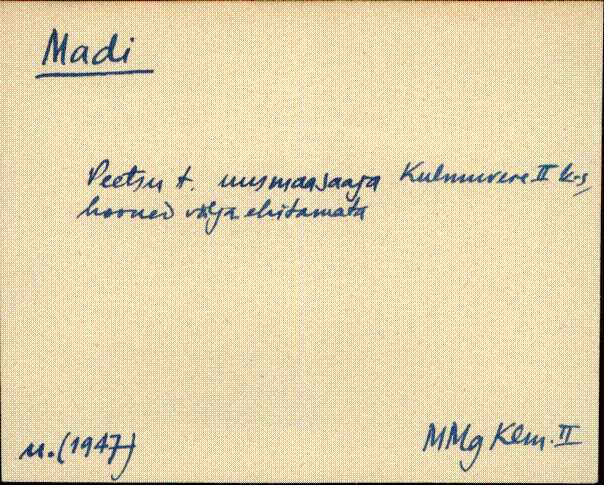 Madi
Peetsu t. uusmaasaaja Kulmuvere II k-s,
hooned välja ehitamata
u. (1947)
MMg Klm. II